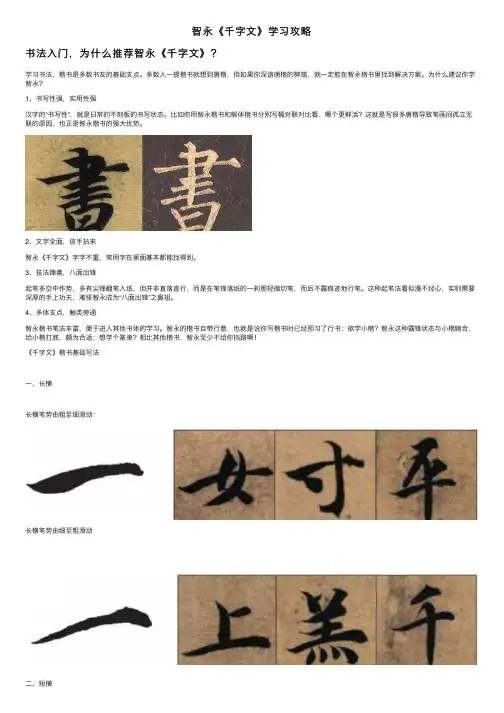 智永《千字文》学习攻略
书法入门，为什么推荐智永《千字文》？
学习书法，楷书是多数书友的基础支点。多数人一提楷书就想到唐楷，但如果你深谙唐楷的弊端，就一定能在智永楷书里找到解决方案。为什么建议你学
智永？
1、书写性强，实用性强
汉字的“书写性”，就是日常的不刻板的书写状态。比如你用智永楷书和颜体楷书分别写幅对联对比看，哪个更鲜活？这就是写很多唐楷导致笔画间孤立无
联的原因，也正是智永楷书的强大优势。
書 書
2、文字全面，信手拈来
智永《千字文》字字不重，常用字在里面基本都能找得到。
3、技法臻善，八面出锋
起笔多空中作势，多有尖锋翻笔入纸，但并非直落直行，而是在笔锋落纸的一刹那轻微切笔，而后不露痕迹地行笔。这种起笔法看似漫不经心，实则需要
深厚的手上功夫，难怪智永成为“八面出锋”之鼻祖。
4、多体支点，触类旁通
智永楷书笔法丰富，便于进入其他书体的学习。智永的楷书自带行意，也就是说你写楷书时已经预习了行书；欲学小楷？智永这种露锋状态与小楷暗合，
给小楷打底，颇为合适；想学个篆隶？相比其他楷书，智永至少不给你挡路啊！
《千字文》楷书基础写法
一、长横
长横笔势由粗至细滑动：
一 女 寸 平
长横笔势由细至粗滑动
一 上 羔 千
二、短横